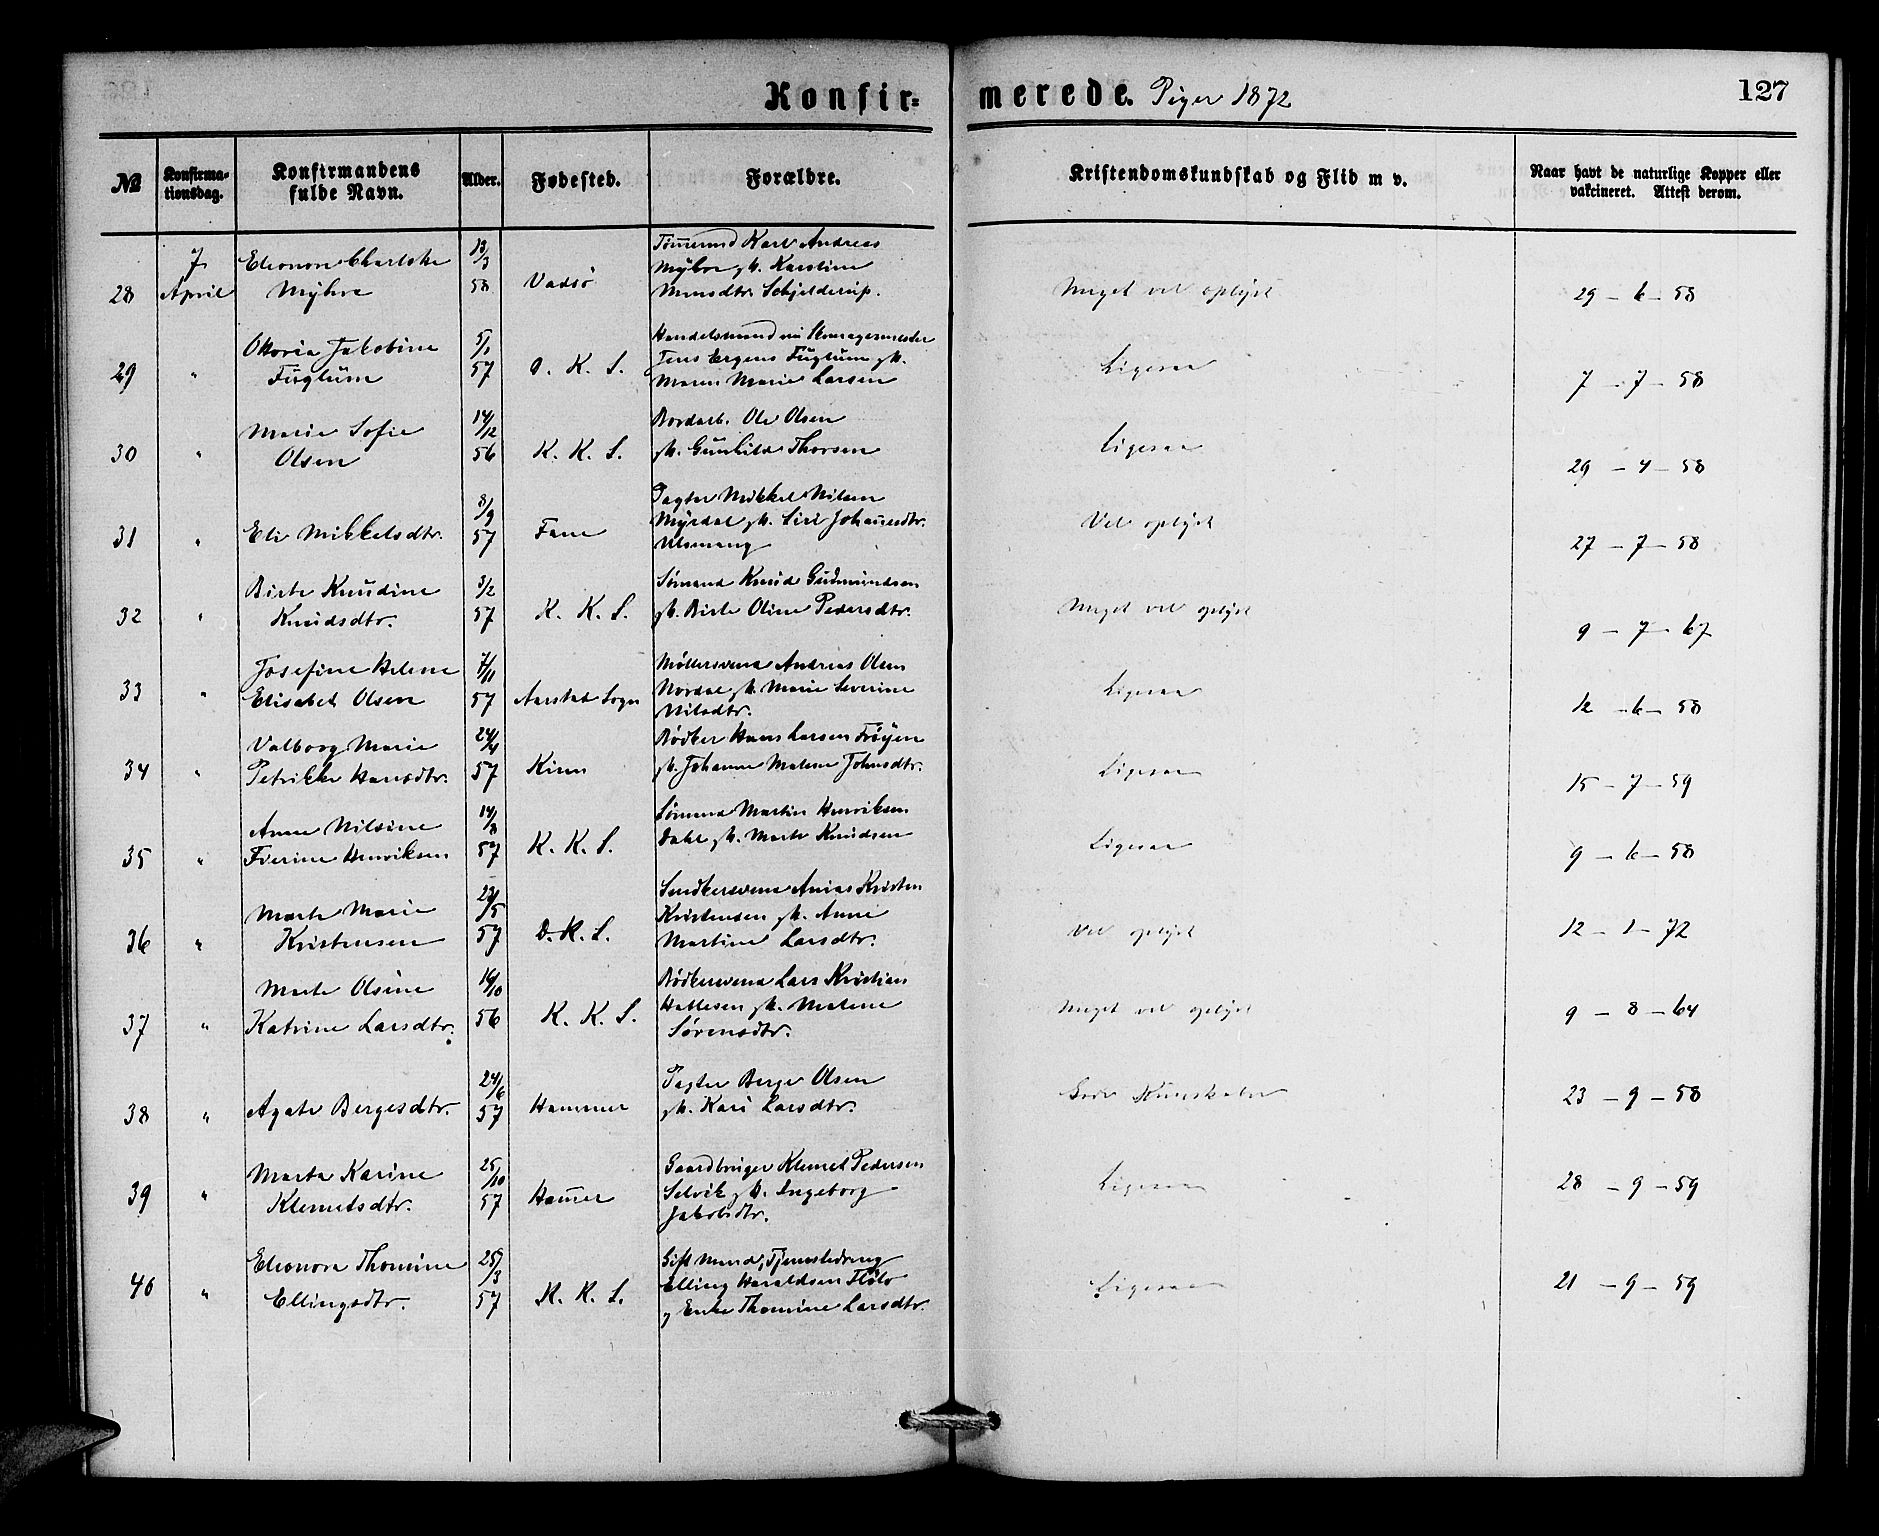 Konfir= merede. Piger 1872 127
№ Konfirma- tionsdag. Konfirmandens fulde Navn. Alder. Fødested. Forældre. Kristendomskundskab og Flid m v. Naar havt de naturlige Kopper eller vakcineret. Attest derom.
7 Eleonore Charlotte 13/3 Tømmermd Karl Andreas
Myhre gh. Karstine
28 April Myhre 58 Vadsø Monsdtr. Schjelderup. Meget vel oplyst 29 - 6 - 58
Handelsmand
Oktovia Jakobine 5/1 Jens Fuglum gh.
29 " Fuglum 57 K. S. Maren Marie Larsen Ligesaa 7 - 7 - 58
Marie Sofie 14/12 Bordarb. Ole Olsen
30 " Olsen 56 K. K. S. gh. Gunhild Thorsen Ligesaa 29 - 4 - 58
8/9 Pagter Mikkel Nilsen
Myrdal gh. Siri Johannesdtr.
31 " Eli Mikkelsdtr. 57 Fane Ulsmaug Vel oplyst 27 - 7 - 58
Birte Knudine 3/2 Sømand Knud Gudmundsen
32 " Knudsdtr. 57 K. K. S. gh. Birte Oline Pedersdtr. Meget vel oplyst 9 - 7 - 67
Josefine Helene 7/11 Møllersvend Andreas Olsen
33 " Elisabet Olsen 57 Aarstad Sogn Nordal gh. Marie Severine Ligesaa 12 - 6 - 58
Nilsdtr.
Valborg Marie 24/4 Bødker Hans Larsen Frøyen
34 " Petrikke Hansdtr. 57 Kinn gh. Johanne Malene Johnsdtr. Ligesaa 15 - 7 - 59
Anne Nilsine 14/8 Sømand Martin Henriksen
35 " Henriksen 57 K. K. S. Dahl gh. Marte Knudsen Ligesaa 9 - 6 - 58
23/5 Kristen
Marte Marie Kristensen gh. Anne
36 " Kristensen 57 D. K. S. Martine Larsdtr. Vel oplyst 12 - 1 - 72
Marte Olsine 16/10 Bødkersvend Lars Kristian
Hallesen gh. Malene
37 " Katrine Larsdtr. 56 K. K. S. Sørensdtr. Meget vel oplyst 9 - 8 - 64
24/6 Pagter Berge Olsen
38 " Agate Bergesdtr. 57 Hammer gh. Kari Larsdtr. Gode Kundskaber 23 - 9 - 58
Marta Karine 25/10 Gaardbruger Klemet Pedersen
39 " Klemetsdtr. 57 Hamer Selvik gh. Ingeborg Ligesaa 28 - 9 - 59
Jakobsdtr.
Eleonora Thomine 25/3 Gift Mand, Tjenestedreng
Elling Haraldsen Flølo
40 " Ellingsdtr. 57 K. K. S. og Enke Thomine Larsdtr. Ligesaa 21 - 9 - 59